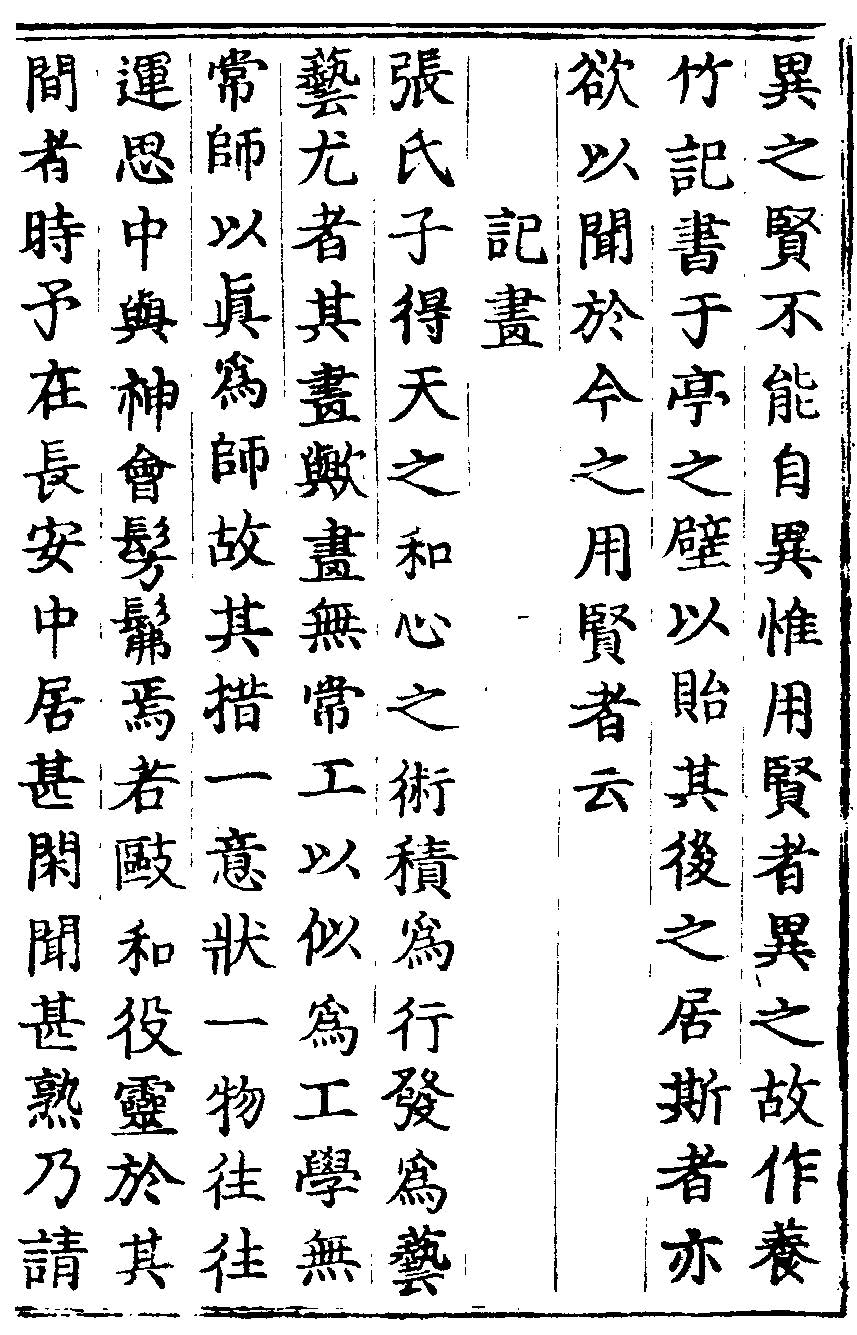 異之賢不能自異惟用賢者異之故作養
竹記書于亭之壁以貽其後之居斯者亦
欲以聞於今之用賢者云
記畫
張氏子得天之和心之術積爲行發爲藝
藝尤者其畫歟畫無常工以似爲工學無
常師以眞爲師故其措一意狀一物往往
運思中與神會髣髴焉若敺和役靈於其
間者時予在長安中居甚閑聞甚熟乃請